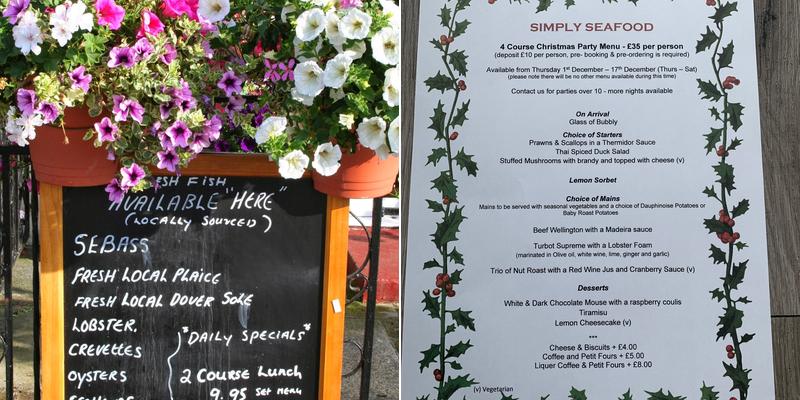 FRESH FISH
AVAILABLE "HERE"
(LOCALLY SOURCED)
SEBASS
FRESH LOCAL PLAICE
FRESH LOCAL DOVER SOLE
LOBSTER.
CREVETTES
OYSTERS
*DAILY SPECIALS*
2 COURSE LUNCH
9.95 SET MENU
SIMPLY SEAFOOD
4 Course Christmas Party Menu - £35 per person
(deposit £10 per person, pre- booking & pre-ordering is required)
Available from Thursday 1st December – 17th December (Thurs – Sat)
(please note there will be no other menu available during this time)
Contact us for parties over 10 - more nights available
On Arrival
Glass of Bubbly
Choice of Starters
Prawns & Scallops in a Thermidor Sauce
Thai Spiced Duck Salad
Stuffed Mushrooms with brandy and topped with cheese (v)
Lemon Sorbet
Choice of Mains
Mains to be served with seasonal vegetables and a choice of Dauphinoise Potatoes or
Baby Roast Potatoes
Beef Wellington with a Madeira sauce
Turbot Supreme with a Lobster Foam
(marinated in Olive oil, white wine, lime, ginger and garlic)
Trio of Nut Roast with a Red Wine Jus and Cranberry Sauce (v)
Desserts
White & Dark Chocolate Mouse with a raspberry coulis
Tiramisu
Lemon Cheesecake (v)
***
Cheese & Biscuits + £4.00
Coffee and Petit Fours + £5.00
Liquer Coffee & Petit Fours + £8.00
(v) Vegetarian